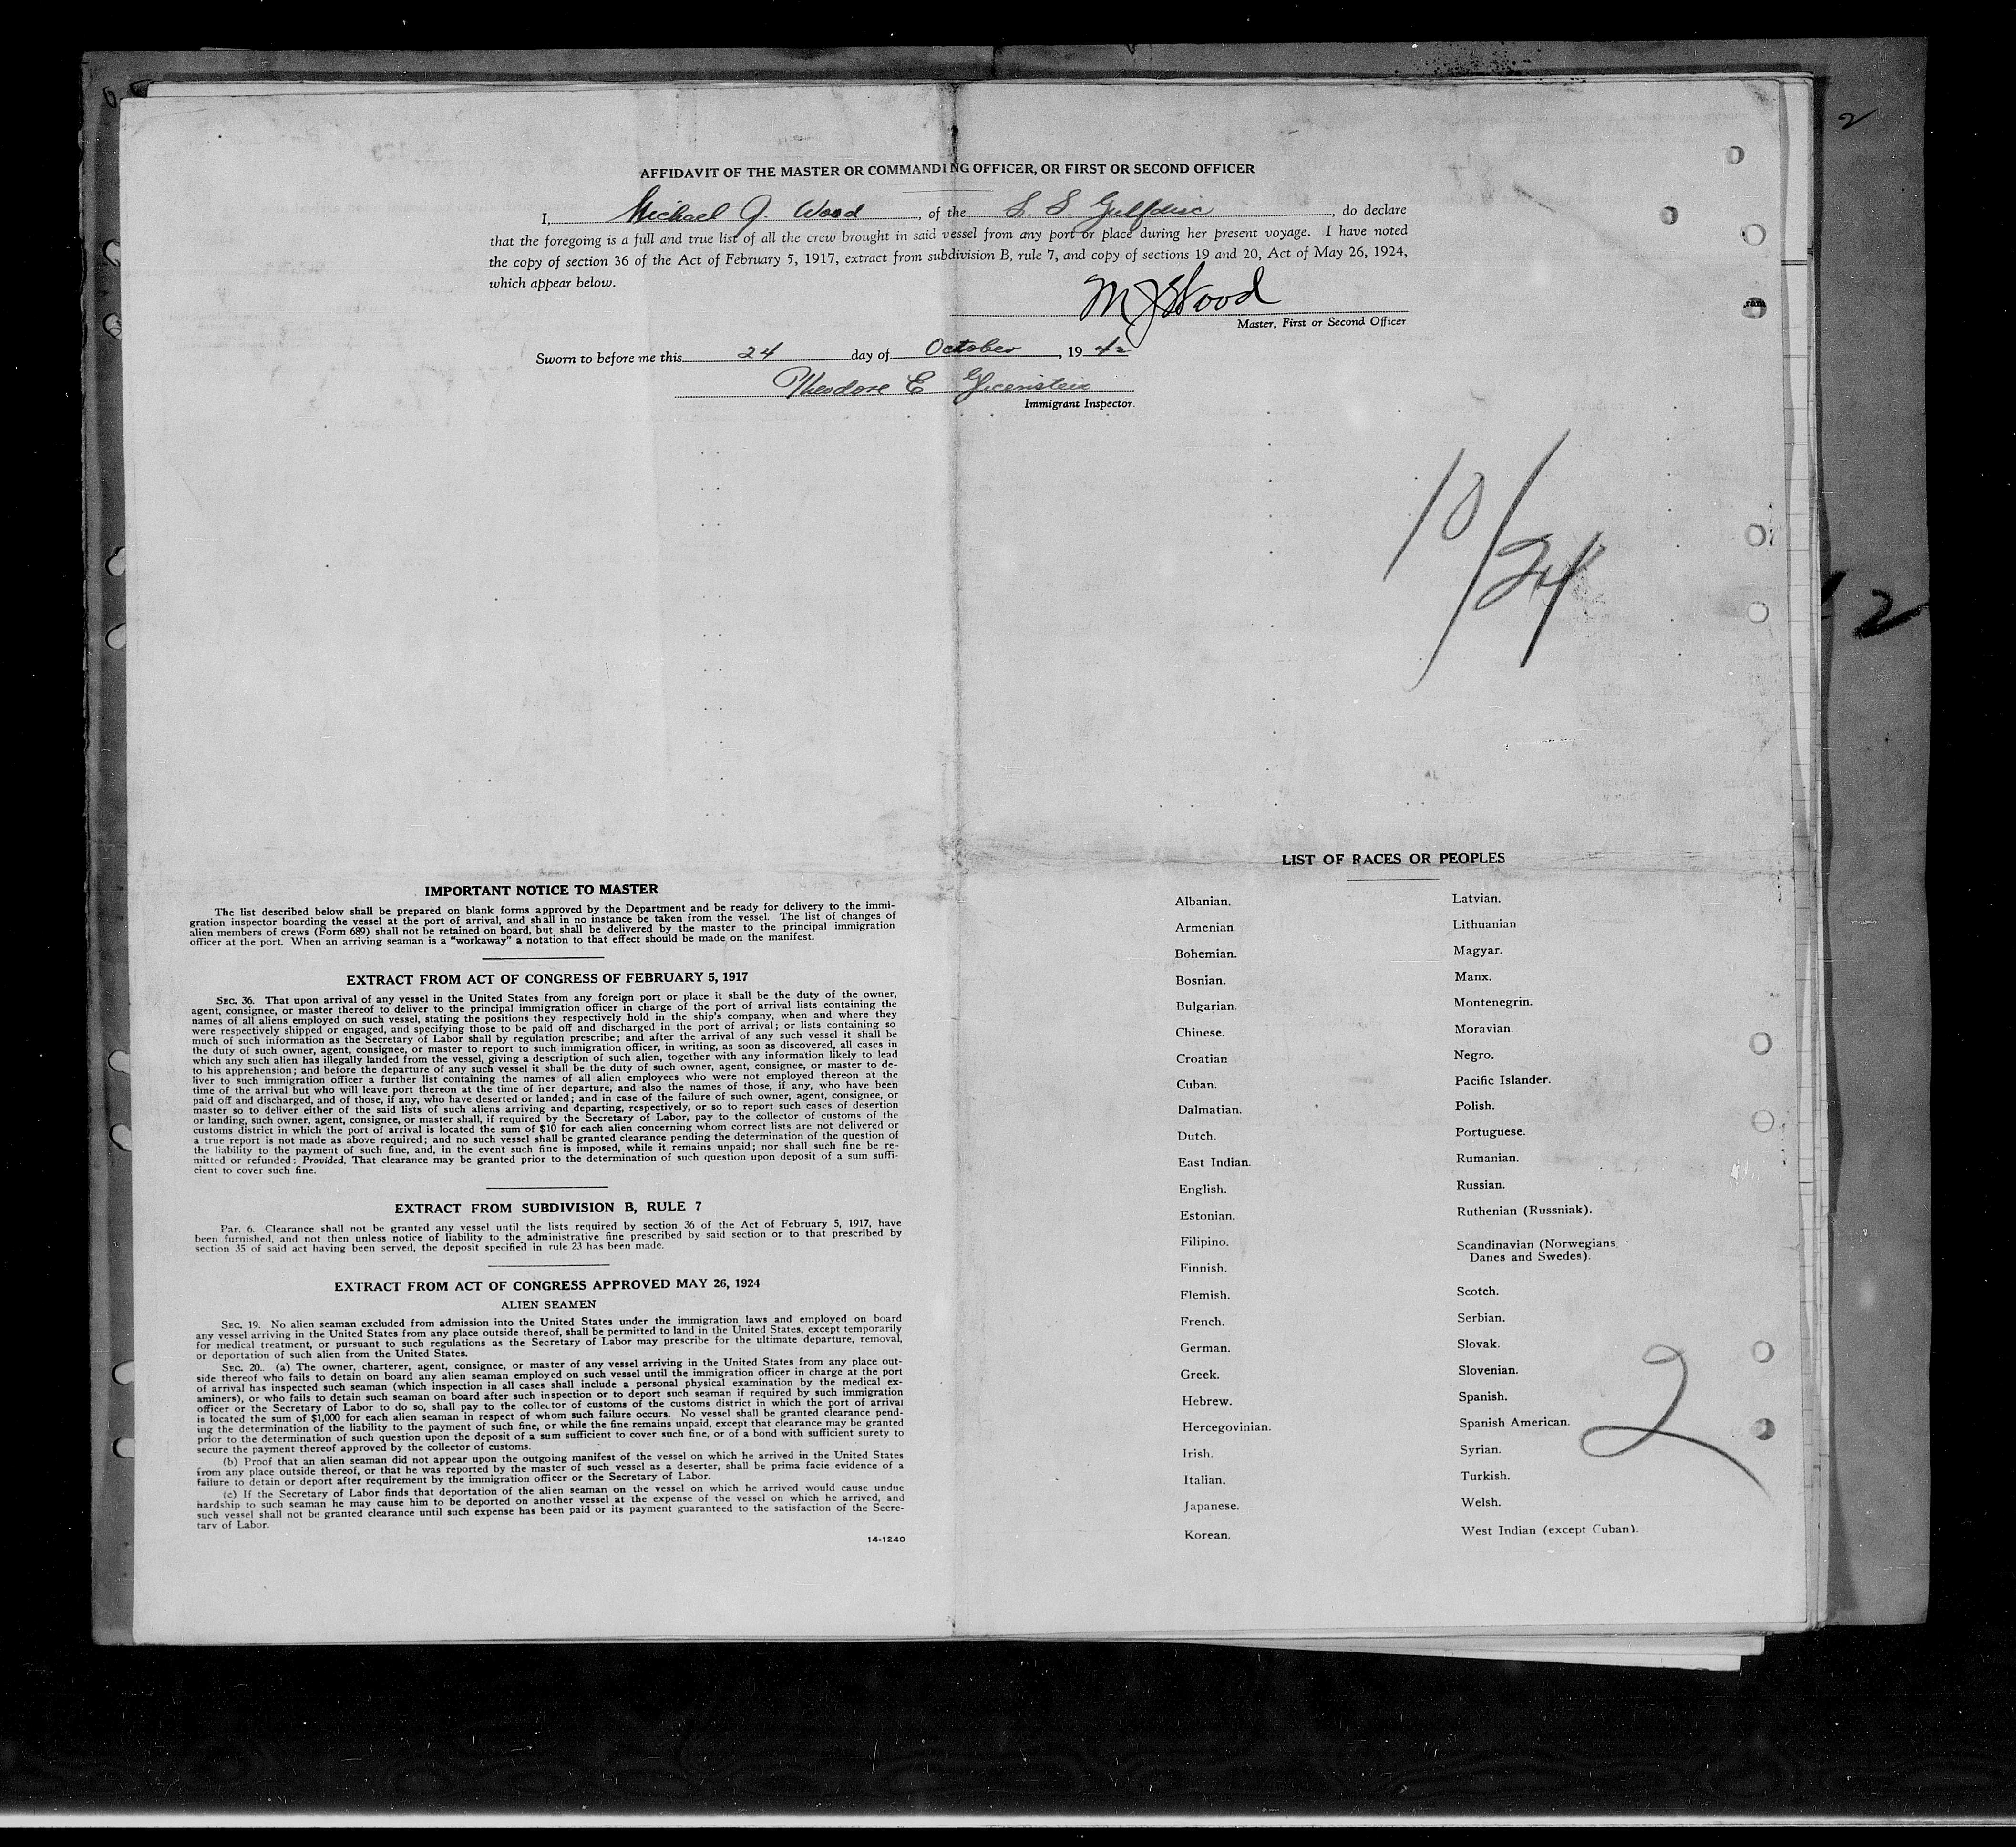 AFFIDAVIT OF THE MASTER OR COMMANDING OFFICER, OR FIRST OR SECOND OFFICER
I, Michael J. Wood, of the S. S. Gulfdisc, do declare
that the foregoing is a full and true list of all the crew brought in said vessel from any port or place during her present voyage. I have noted
the copy of section 36 of the Act of February 5, 1917, extract from subdivision B, rule 7, and copy of sections 19 and 20, Act of May 26, 1924,
which appear below.
M J Wood
Master, First or Second Officer
Sworn to before me this 24 day of October, 19 42
Theodore E
Immigrant Inspector.
10/24
2
2
IMPORTANT NOTICE TO MASTER
The list described below shall be prepared on blank forms approved by the Department and be ready for delivery to the immi-
gration inspector boarding the vessel at the port of arrival, and shall in no instance be taken from the vessel. The list of changes of
alien members of crews (Form 689) shall not be retained on board, but shall be delivered by the master to the principal immigration
officer at the port. When an arriving seaman is a "workaway" a notation to that effect should be made on the manifest.
EXTRACT FROM ACT OF CONGRESS OF FEBRUARY 5, 1917
SEC. 36. That upon arrival of any vessel in the United States from any foreign port or place it shall be the duty of the owner,
agent, consignee, or master thereof to deliver to the principal immigration officer in charge of the port of arrival lists containing the
names of all aliens employed on such vessel, stating the positions they respectively hold in the ship's company, when and where they
were respectively shipped or engaged, and specifying those to be paid off and discharged in the port of arrival; or lists containing so
much of such information as the Secretary of Labor shall by regulation prescribe; and after the arrival of any such vessel it shall be
the duty of such owner, agent, consignee, or master to report to such immigration officer, in writing, as soon as discovered, all cases in
which any such alien has illegally landed from the vessel, giving a description of such alien, together with any information likely to lead
to his apprehension; and before the departure of any such vessel it shall be the duty of such owner, agent, consignee, or master to de-
liver to such immigration officer a further list containing the names of all alien employees who were not employed thereon at the
time of the arrival but who will leave port thereon at the time of her departure, and also the names of those, if any, who have been
paid off and discharged, and of those, if any, who have deserted or landed; and in case of the failure of such owner, agent, consignee, or
master so to deliver either of the said lists of such aliens arriving and departing, respectively, or so to report such cases of desertion
or landing, such owner, agent, consignee, or master shall, if required by the Secretary of Labor, pay to the collector of customs of the
customs district in which the port of arrival is located the sum of $10 for each alien concerning whom correct lists are not delivered or
a true report is not made as above required; and no such vessel shall be granted clearance pending the determination of the question of
the liability to the payment of such fine, and, in the event such fine is imposed, while it remains unpaid; nor shall such fine be re-
mitted or refunded: Provided, That clearance may be granted prior to the determination of such question upon deposit of a sum suffi-
cient to cover such fine.
EXTRACT FROM SUBDIVISION B, RULE 7
Par. 6. Clearance shall not be granted any vessel until the lists required by section 36 of the Act of February 5, 1917, have
been furnished, and not then unless notice of liability to the administrative fine prescribed by said section or to that prescribed by
section 35 of said act having been served, the deposit specified in rule 23 has been made.
EXTRACT FROM ACT OF CONGRESS APPROVED MAY 26, 1924
ALIEN SEAMEN
SEC. 19. No alien seaman excluded from admission into the United States under the immigration laws and employed on board
any vessel arriving in the United States from any place outside thereof, shall be permitted to land in the United States, except temporarily
for medical treatment, or pursuant to such regulations as the Secretary of Labor may prescribe for the ultimate departure, removal,
or deportation of such alien from the United States.
SEC. 20. (a) The owner, charterer, agent, consignee, or master of any vessel arriving in the United States from any place out-
side thereof who fails to detain on board any alien seaman employed on such vessel until the immigration officer in charge at the port
of arrival has inspected such seaman (which inspection in all cases shall include a personal physical examination by the medical ex-
aminers), or who fails to detain such seaman on board after such inspection or to deport such seaman if required by such immigration
officer or the Secretary of Labor to do so, shall pay to the collector of customs of the customs district in which the port of arrival
is located the sum of $1,000 for each alien seaman in respect of whom such failure occurs. No vessel shall be granted clearance pend-
ing the determination of the liability to the payment of such fine, or while the fine remains unpaid, except that clearance may be granted
prior to the determination of such question upon the deposit of a sum sufficient to cover such fine, or of a bond with sufficient surety to
secure the payment thereof approved by the collector of customs.
(b) Proof that an alien seaman did not appear upon the outgoing manifest of the vessel on which he arrived in the United States
from any place outside thereof, or that he was reported by the master of such vessel as a deserter, shall be prima facie evidence of a
failure to detain or deport after requirement by the immigration officer or the Secretary of Labor.
(c) If the Secretary of Labor finds that deportation of the alien seaman on the vessel on which he arrived would cause undue
hardship to such seaman he may cause him to be deported on another vessel at the expense of the vessel on which he arrived, and
such vessel shall not be granted clearance until such expense has been paid or its payment guaranteed to the satisfaction of the Secre-
tary of Labor.
14-1240
LIST OF RACES OR PEOPLES
Albanian.
Armenian
Bohemian.
Bosnian.
Bulgarian.
Chinese.
Croatian
Cuban.
Dalmatian.
Dutch.
East Indian.
English.
Estonian.
Filipino.
Finnish.
Flemish.
French.
German.
Greek.
Hebrew.
Hercegovinian.
Irish.
Italian.
Japanese.
Korean.
Latvian.
Lithuanian
Magyar.
Manx.
Montenegrin.
Moravian.
Negro.
Pacific Islander.
Polish.
Portuguese.
Rumanian.
Russian.
Ruthenian (Russniak).
Scandinavian (Norwegians
Danes and Swedes).
Scotch.
Serbian.
Slovak.
Slovenian.
Spanish.
Spanish American.
Syrian.
Turkish.
Welsh.
West Indian (except Cuban).
2